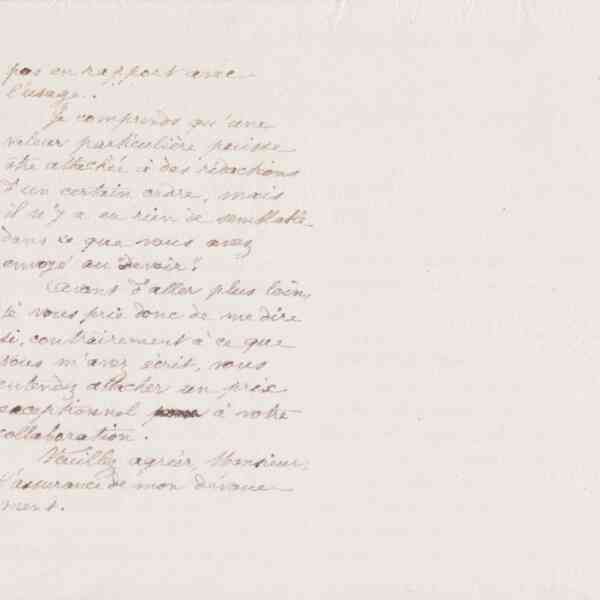 pas en rapport avec
l'usage.
Je comprends qu'une
valeur particulière puisse
être attachée à des rédactions
d'un certain ordre, mais
il n'y a eu rien de semblable
dans ce que vous avez
envoyé au "Devoir".
Avant d'aller plus loin,
je vous prie donc de me dire
si, contrairement à ce que
vous m'avez écrit, vous
entendez attacher un prix
exceptionnel à votre
collaboration.
Veuillez agréer, Monsieur,
l'assurance de mon dévoue-
ment.